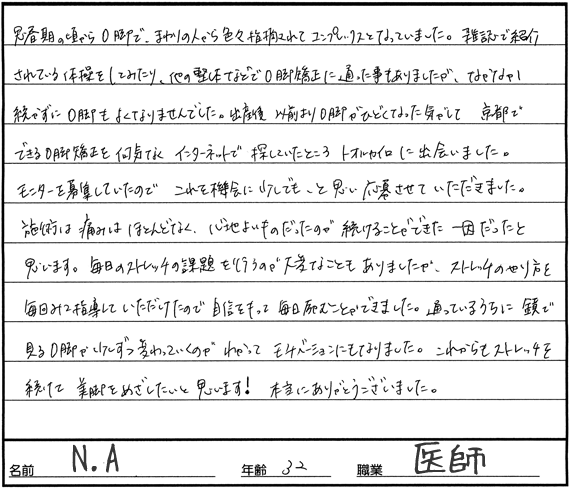 思春期の頃からO脚で、まわりの人から色々指摘されてコンプレックスとなっていました。雑誌で紹介
されている体操をしてみたり、他の整体などでO脚矯正に通った事もありましたが、なかなか
続かずにO脚もよくなりませんでした。出産後 以前よりO脚がひどくなった気がして 京都で
できるO脚矯正を何気なく インターネットで 探していたところ トオルカイロに出会いました。
モニターを募集していたので これを機会に少しでも、と思い 応募させていただきました。
施術は 痛みは ほとんどなく、心地よいものだったのが 続けることができた 一因だったと
思います。毎日のストレッチの課題を行うのが大変なこともありましたが、ストレッチのやり方を
毎回みて指導していただけたので 自信をもって 毎日励むことができました。通っているうちに 鏡で
見るO脚が少しずつ変わっていくのが わかって モチベーションにもなりました。これからもストレッチを
続けて 美脚をめざしたいと思います! 本当にありがとうございました。
名前 N.A 年齢 32 職業 医師